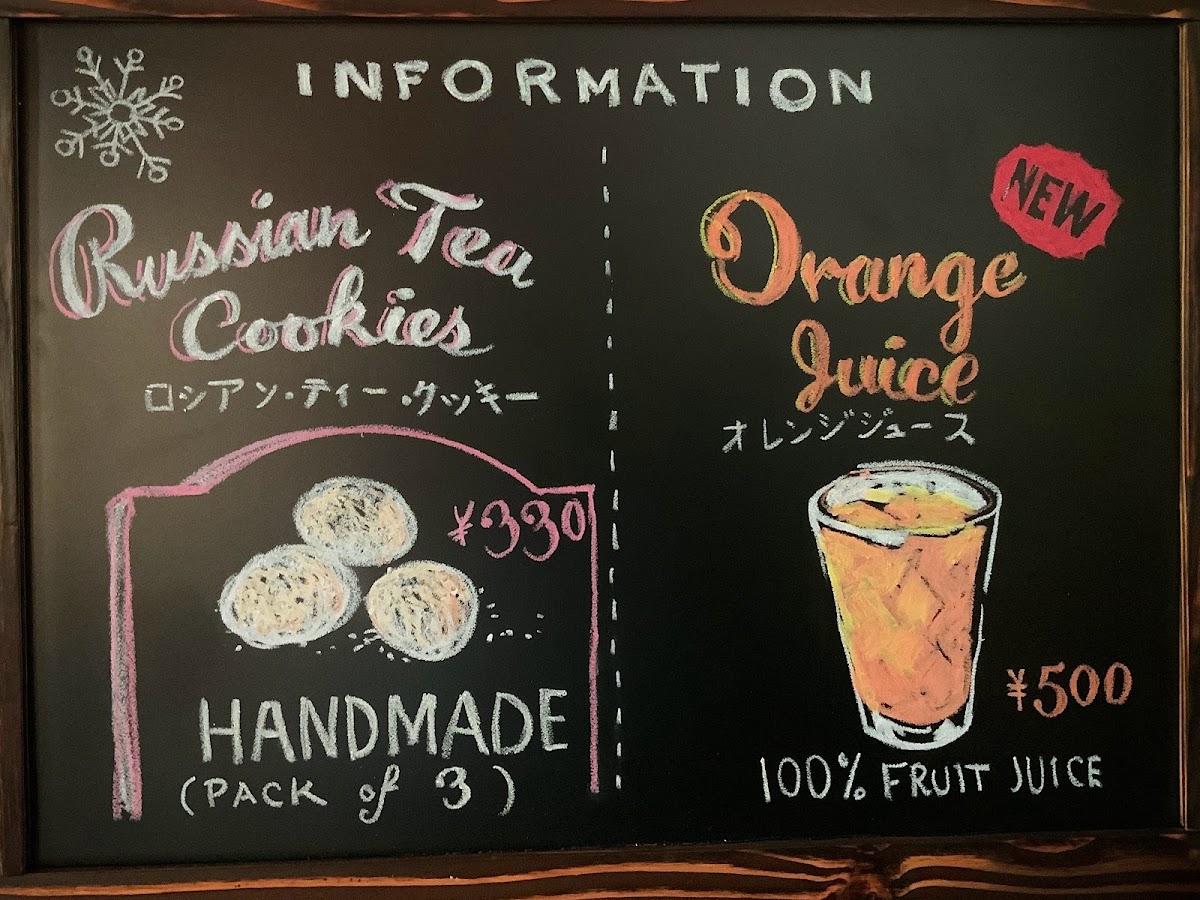 INFORMATION
Russian Tea
Cookies
ロシアン・ティー・クッキー
¥330
HANDMADE
(PACK of 3)
NEW
Orange
Juice
オレンジジュース
¥500
100% FRUIT JUICE